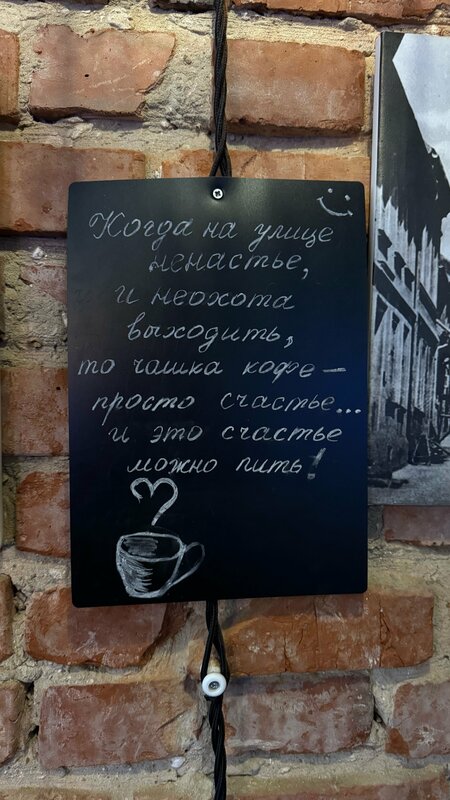 Когда на улице
ненастье,
и неохота
выходить,
то чашка кофе —
просто счастье...
и это счастье
можно пить!